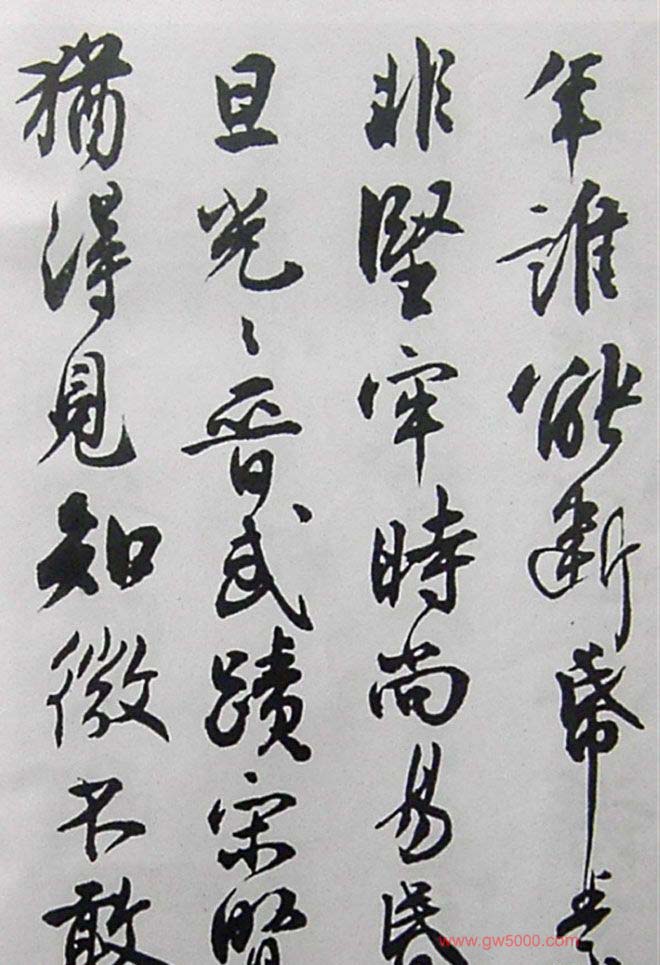 年誰能斷
非堅牢時尚易昏
旦光〻晉武蹟宋賢
猶得見知微不敢
www.gw5000.com